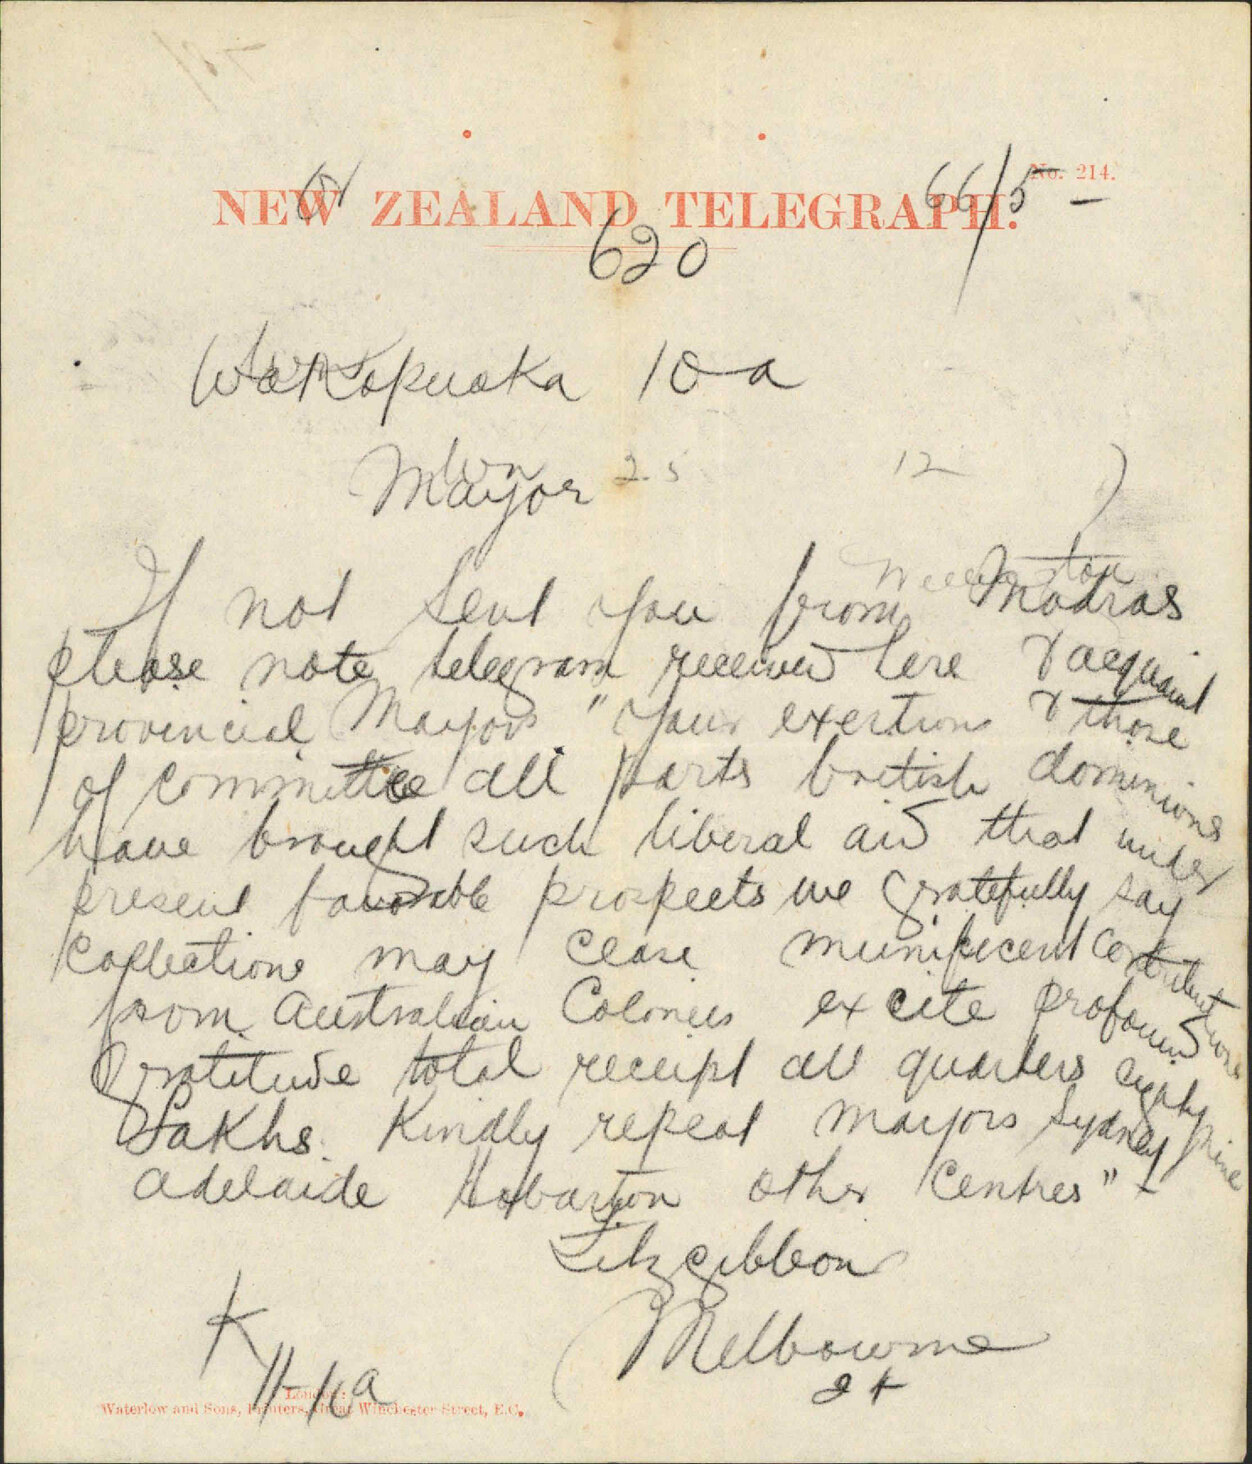 No. 214.
NEW ZEALAND TELEGRAPH.
66/5 -
620
Wakapuaka 10 a
25 12
Mayor
Wellington
If not sent you from Madras
please note telegram received here & acquaint
provincial Mayors "Your exertions & those
of committee all parts british dominions
have brought such liberal aid that under
present favorable prospects we gratefully say
collections may cease munificent contributions
from Australian Colonies excite profound
gratitude total receipt all quarters eighty nine
Lakhs. Kindly repeat mayors Sydney
Adelaide Hobarton other Centres" -
Fitzgibbon
Melbourne
K
11-16a
London:
Waterlow and Sons, Printers, Great Winchester Street, E.C.